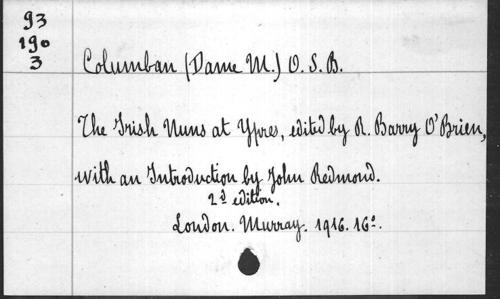 93
190
3
Columban (Dame M.) O. S. B.
The Irish Nuns at Ypres, edited by R. Barry O'Brien,
with an Introduction by John Redmond.
2d edition.
London. Murray. 1916. 16°.